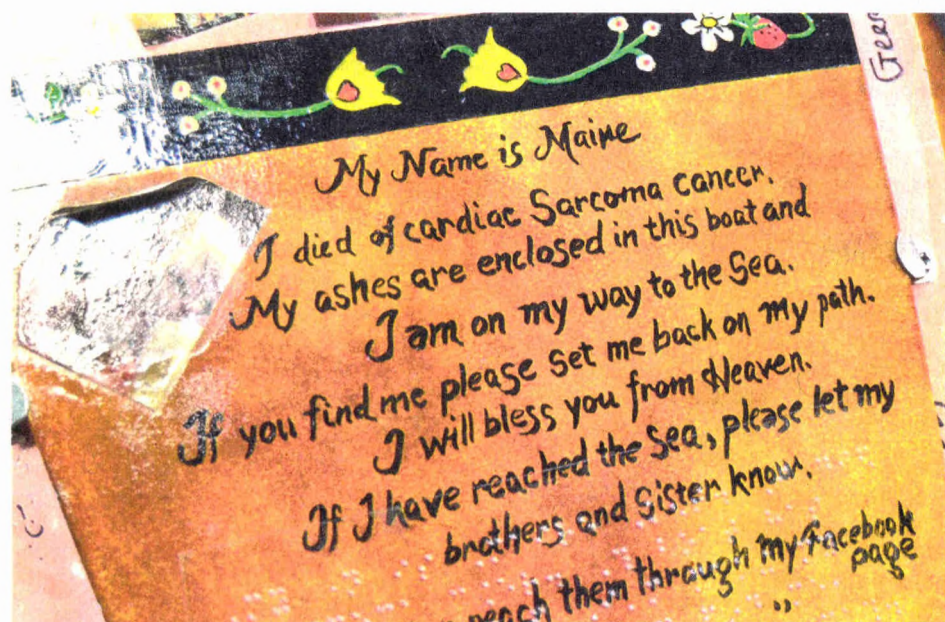 My Name is Maire
I died of cardiac Sarcoma cancer.
My ashes are enclosed in this boat and
I am on my way to the Sea.
If you find me please set me back on my path.
I will bless you from Heaven.
If I have reached the Sea, please let my
brothers and Sister know.
reach them through my Facebook
page